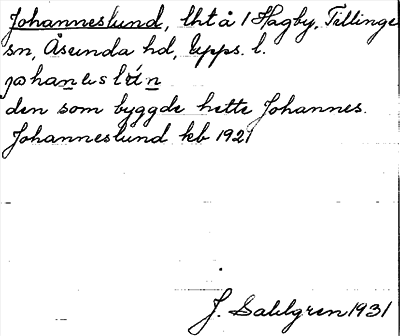 Johanneslund, lht å 1 Hagby, Tillinge
sn, Åsunda hd, Upps. l.
den som byggde hette Johannes.
Johanneslund kb 1921
J. Sahlgren 1931